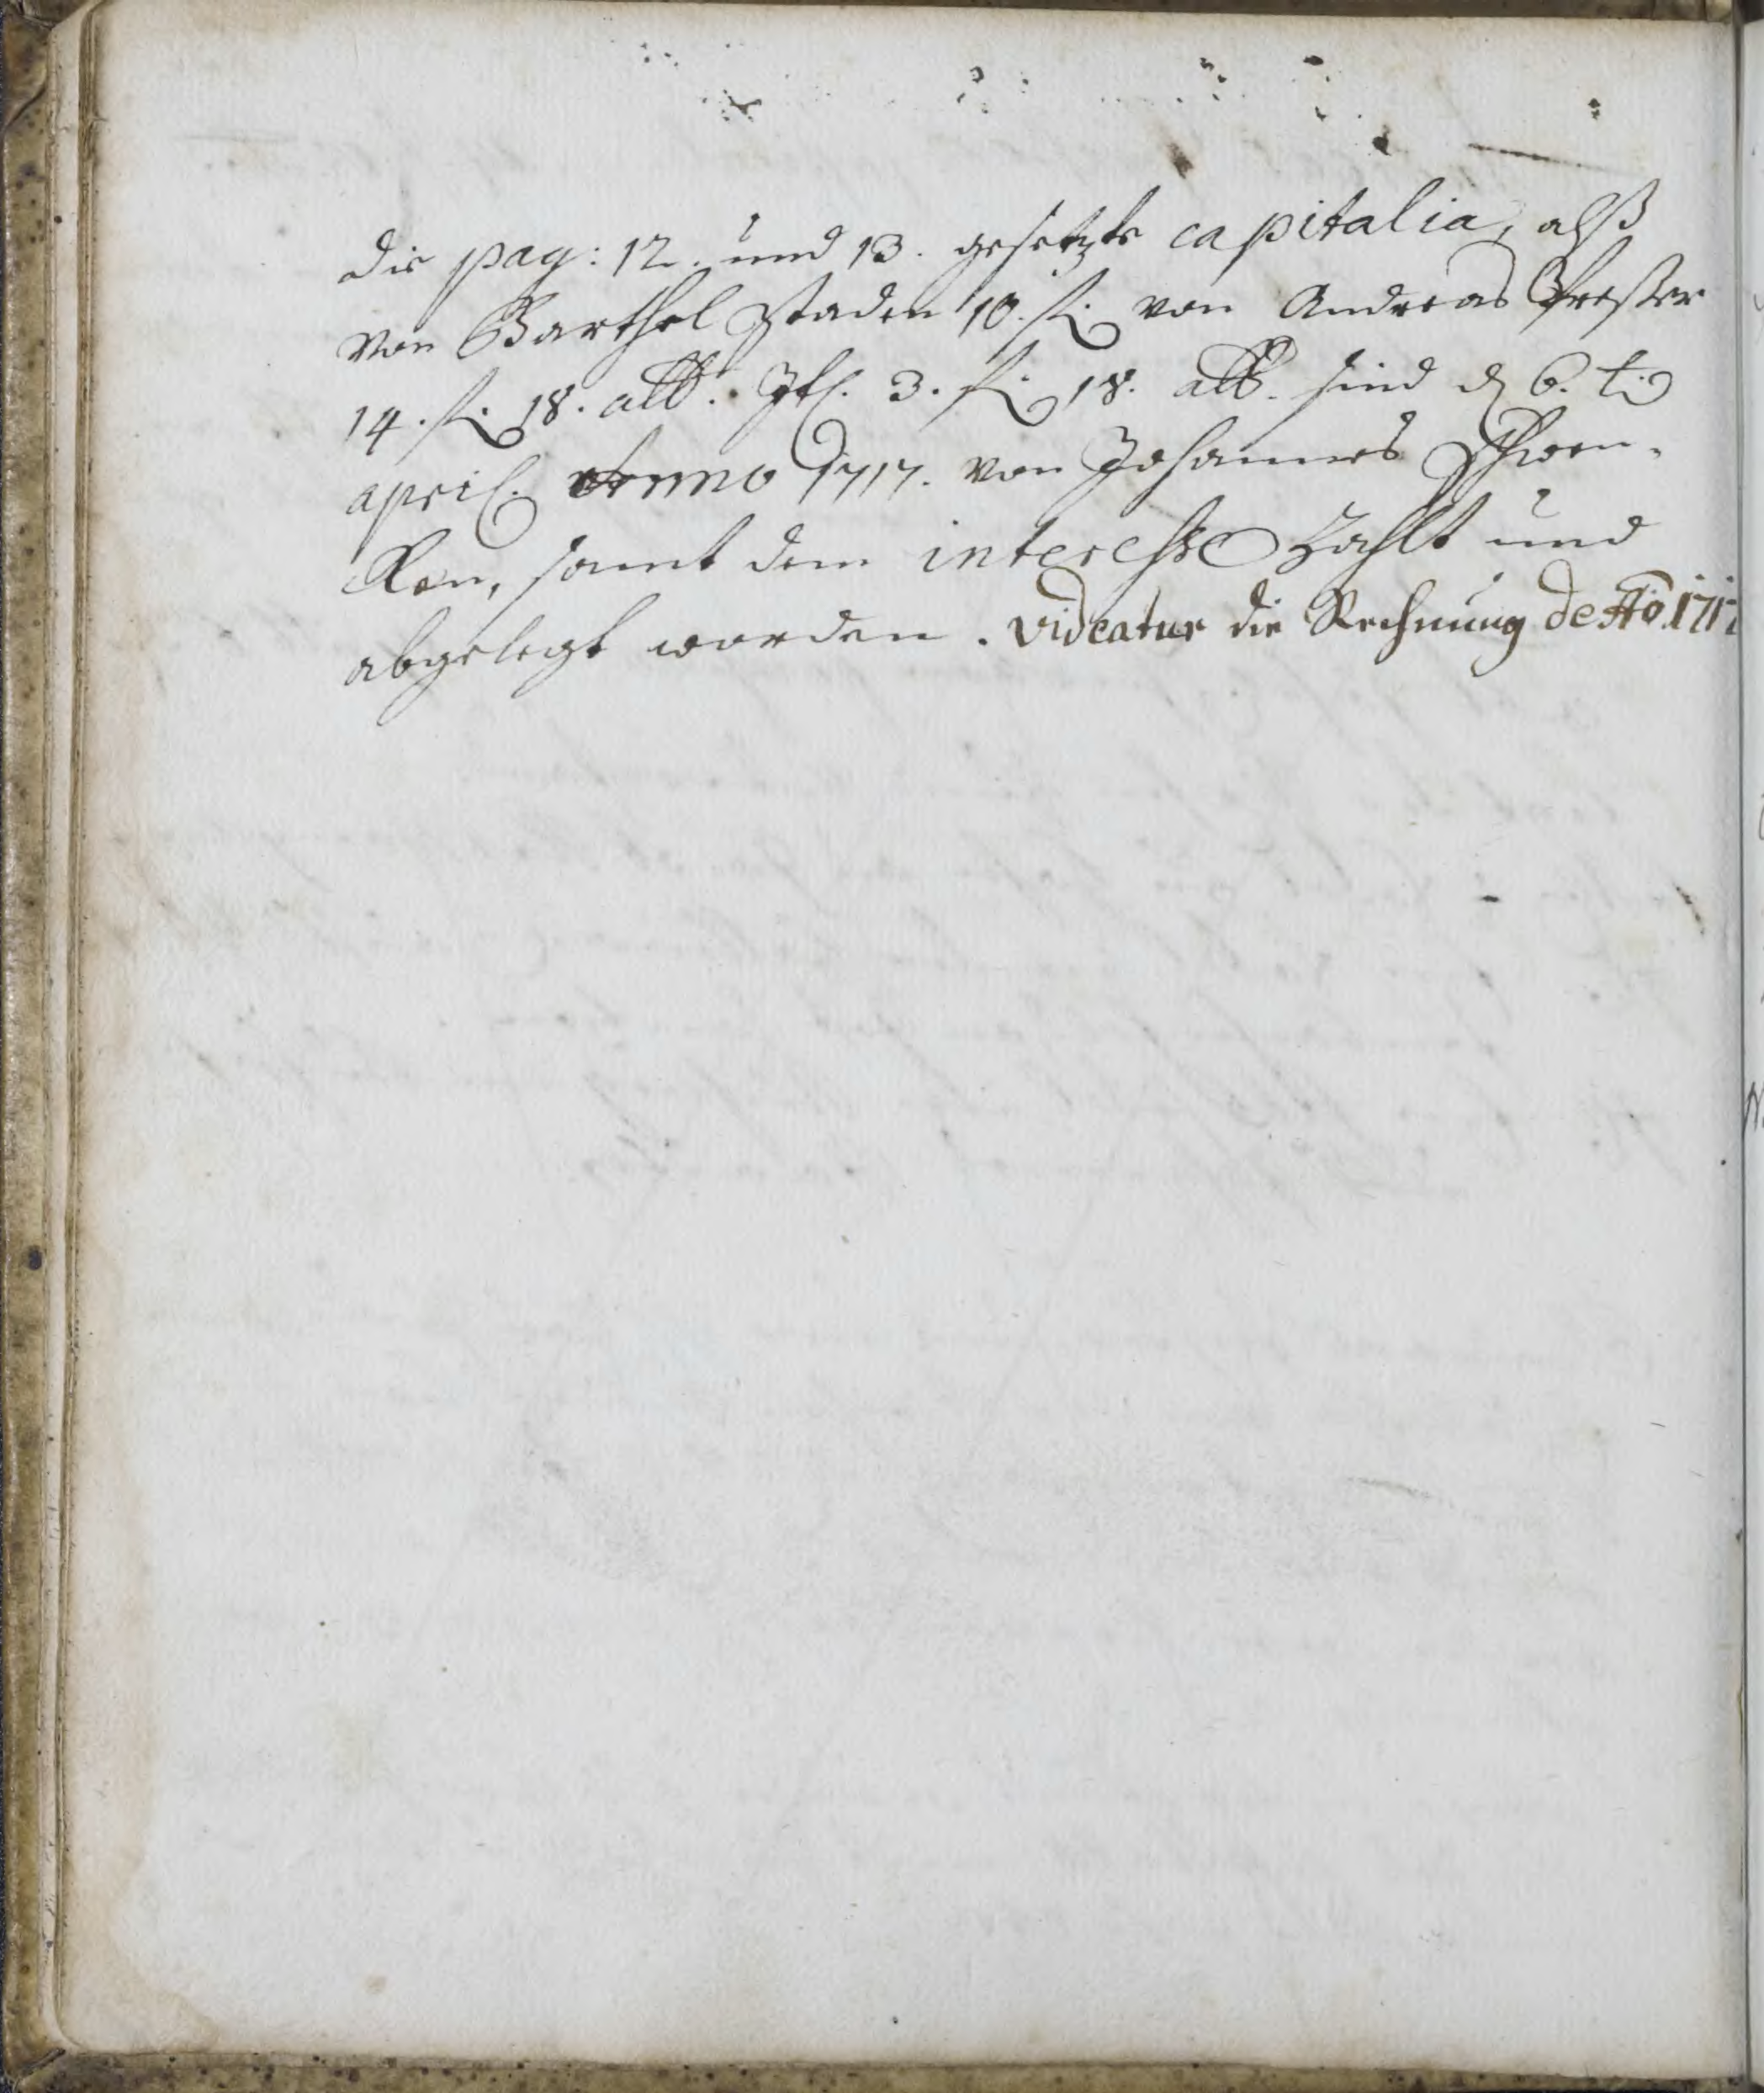 die pag: 12. und 13. gesetzte capitalia, alß
von Barthel Staden 10. fl. von Andreas
14. fl. 18. alb. 3. fl. 18. alb. sind d 6. t.
april. Anno 1717. von Johannes Schwen-
ken, samt dem interesse Zahlt und
abgelegt worden. videatur die Rechnung de Ao. 1717